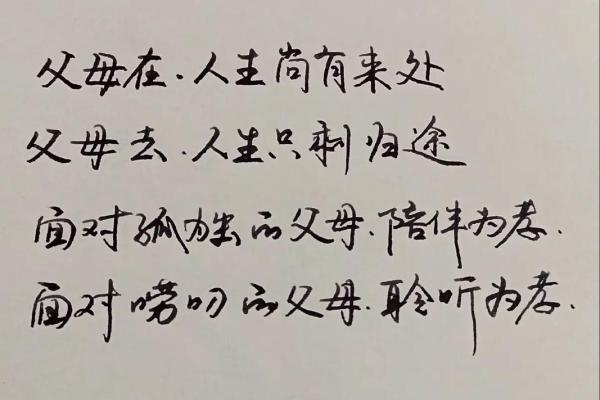 父母在.人生尚有来处
父母去.人生只剩归途
面对孤独的父母.陪伴为孝.
面对唠叨的父母.聆听为孝.